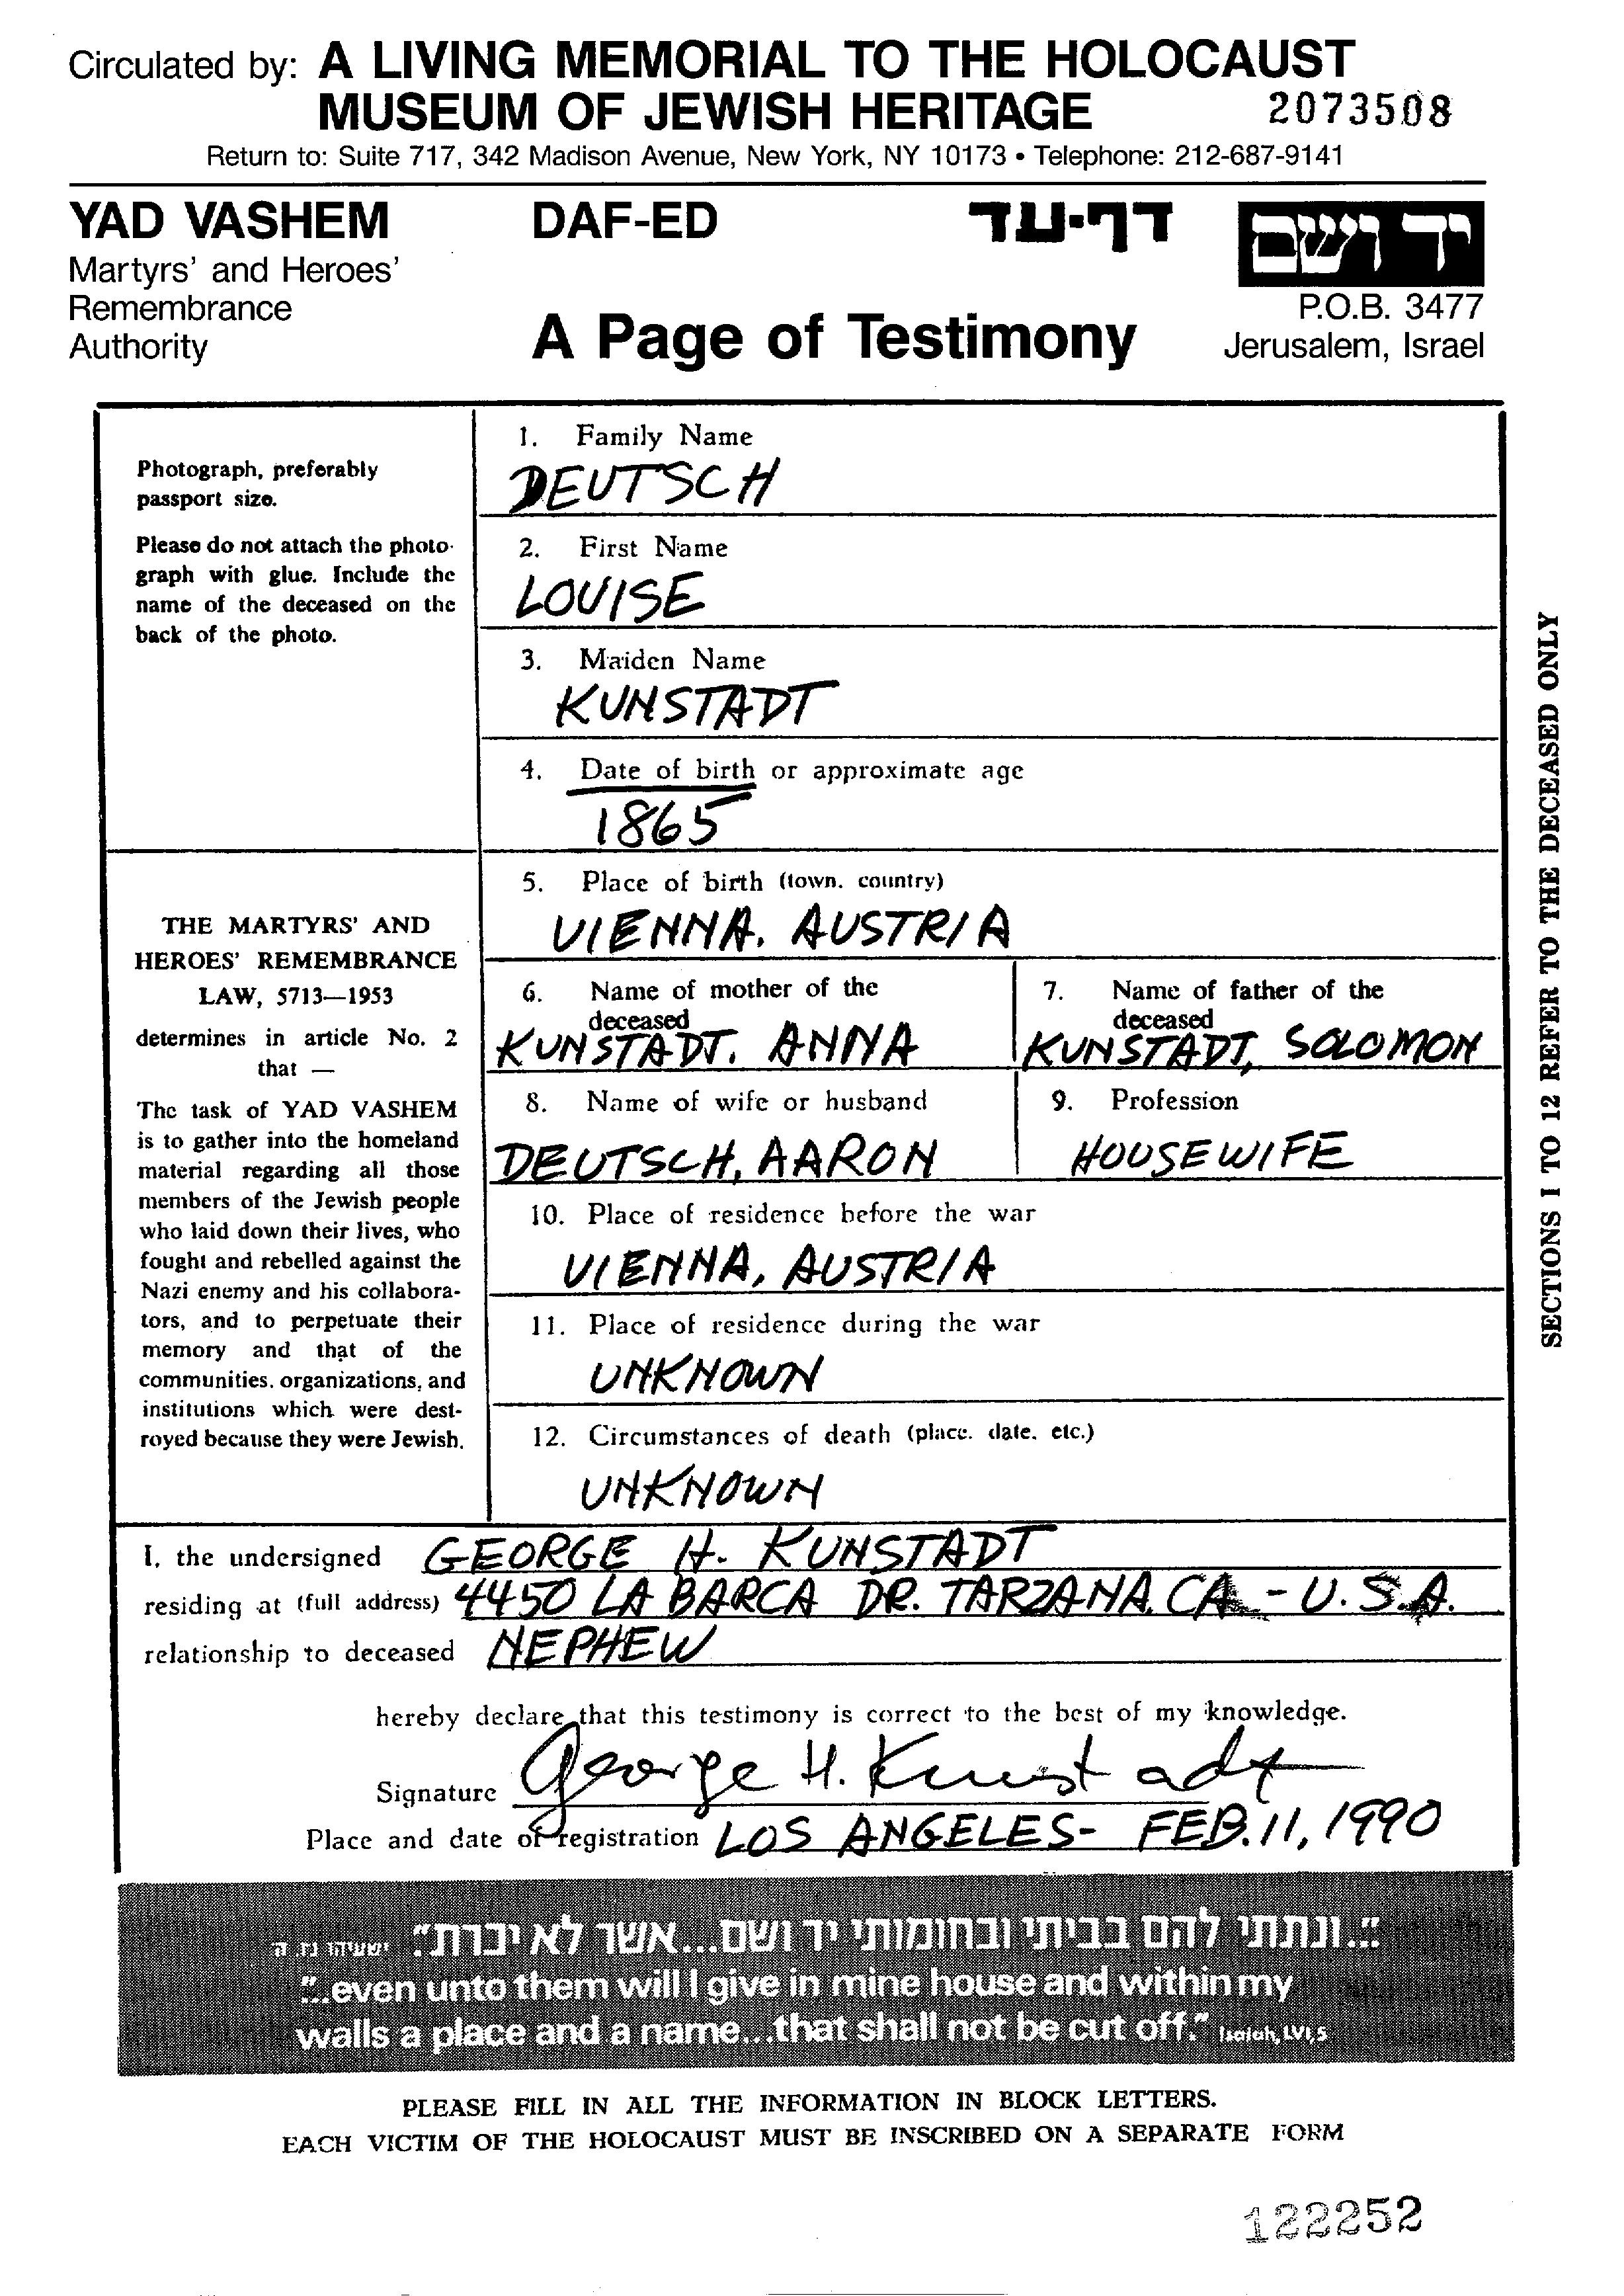 Circulated by: A LIVING MEMORIAL TO THE HOLOCAUST
MUSEUM OF JEWISH HERITAGE 2073508
Return to: Suite 717, 342 Madison Avenue, New York, NY 10173 • Telephone: 212-687-9141
YAD VASHEM DAF-ED דף-עד יד ושם
Martyrs' and Heroes'
Remembrance
Authority
A Page of Testimony
P.O.B. 3477
Jerusalem, Israel
Photograph, preferably
passport size.
Please do not attach the photo-
graph with glue. Include the
name of the deceased on the
back of the photo.
THE MARTYRS' AND
HEROES' REMEMBRANCE
LAW, 5713—1953
determines in article No. 2
that —
The task of YAD VASHEM
is to gather into the homeland
material regarding all those
members of the Jewish people
who laid down their lives, who
fought and rebelled against the
Nazi enemy and his collabora-
tors, and to perpetuate their
memory and that of the
communities, organizations, and
institutions which were dest-
royed because they were Jewish.
1. Family Name
DEUTSCH
2. First Name
LOUISE
3. Maiden Name
KUNSTADT
4. Date of birth or approximate age
1865
5. Place of birth (town, country)
VIENNA, AUSTRIA
6. Name of mother of the
deceased
KUNSTADT, ANNA
7. Name of father of the
deceased
KUNSTADT, SOLOMON
8. Name of wife or husband
DEUTSCH, AARON
9. Profession
HOUSEWIFE
10. Place of residence before the war
VIENNA, AUSTRIA
11. Place of residence during the war
UNKNOWN
12. Circumstances of death (place, date, etc.)
UNKNOWN
SECTIONS 1 TO 12 REFER TO THE DECEASED ONLY
I, the undersigned GEORGE H. KUNSTADT
residing at (full address) 4450 LA BARCA DR. TARZANA, CA - U.S.A.
relationship to deceased NEPHEW
hereby declare that this testimony is correct to the best of my knowledge.
Signature George H. Kunstadt
Place and date of registration LOS ANGELES- FEB. 11, 1990
"...ונתתי להם בביתי ובחומותי יד ושם...אשר לא יכרת." ישעיהו נו, ה
"...even unto them will I give in mine house and within my
walls a place and a name...that shall not be cut off." Isaiah, LVI, 5
PLEASE FILL IN ALL THE INFORMATION IN BLOCK LETTERS.
EACH VICTIM OF THE HOLOCAUST MUST BE INSCRIBED ON A SEPARATE FORM
122252